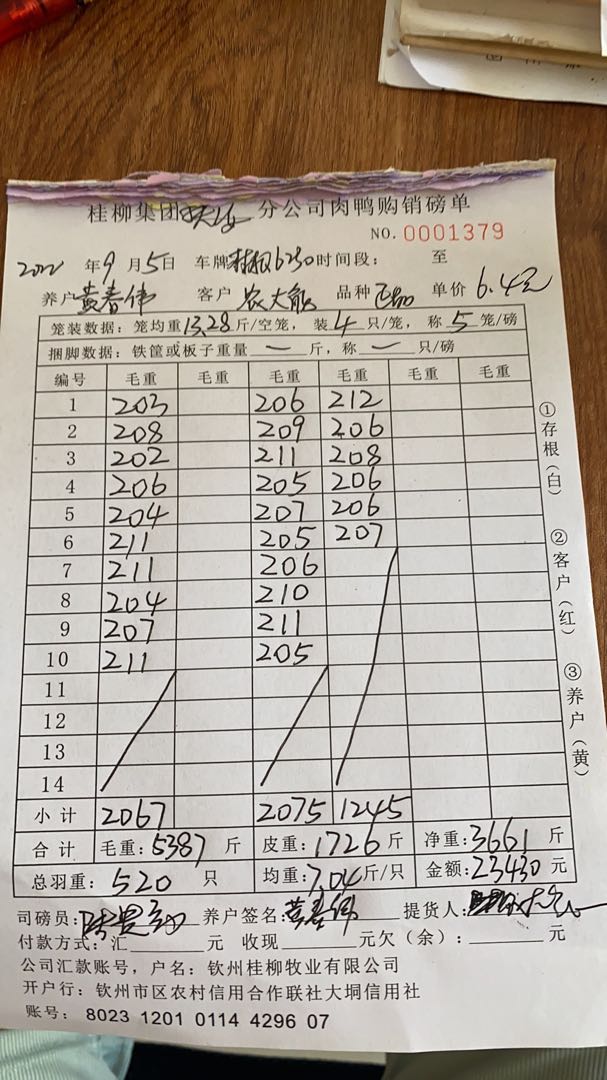 桂柳集团 分公司肉鸭购销磅单
NO. 0001379
2022年9月5日 车牌 6230 时间段: 至
养户 黄春伟 客户 农大能 品种 正品 单价 6.4元
笼装数据: 笼均重13.28斤/空笼, 装4只/笼, 称5笼/磅
捆脚数据: 铁筐或板子重量 一 斤, 称 一 只/磅
编号 毛重 毛重 毛重 毛重 毛重 毛重
1 203 206 212
2 208 209 206
3 202 211 208
4 206 205 206
5 204 207 206
6 211 205 207
7 211 206
8 204 210
9 207 211
10 211 205
11
12
13
14
小计 2067 2075 1245
合计 毛重:5387斤 皮重:1726斤 净重:3661斤
总羽重: 520 只 均重:7.04斤/只 金额:23430元
司磅员: 养户签名: 黄春伟 提货人:
付款方式: 汇 元 收现 元欠(余): 元
公司汇款账号, 户名: 钦州桂柳牧业有限公司
开户行: 钦州市区农村信用合作联社大垌信用社
账号: 8023 1201 0114 4296 07
①存根(白)
②客户(红)
③养户(黄)